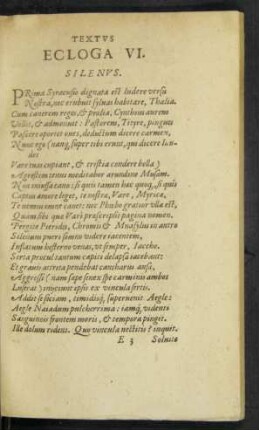 TEXTVS
ECLOGA VI.
SILENVS.
PRima Syracosio dignata est ludere versu
Nostra, nec erubuit sylvas habitare, Thalia.
Cum canerem reges, & prælia, Cynthius aurem
Vellit, & admonuit: Pastorem, Tityre, pingues
Pascere oportet oues, deductum dicere carmen.
Nunc ego (namq; super tibi erunt, qui dicere laudes
Vare tuas cupiant, & tristia condere bella)
Agrestem tenui meditabor arundine Musam.
Non iniussa cano: si quis tamen hæc quoq; si quis
Captus amore leget, te nostræ, Vare, Myricæ,
Te nemus omne canet: nec Phœbo gratior vlla est,
Quam sibi quæ Vari præscripsit pagina nomen.
Pergite Pierides, Chromis & Mnasylus in antro
Silenum pueri somno videre iacentem,
Inflatum hesterno venas, vt semper, Iaccho.
Serta procul tantum capiti delapsa iacebant:
Et grauis attrita pendebat cantharus ansa.
Aggressi (nam sæpe senex spe carminis ambos
Luserat) iniiciunt ipsis ex vincula sertis.
Addit se sociam, timidisq; superuenit Aegle:
Aegle Naiadum pulcherrima: iamq; videnti
Sanguineis frontem moris, & tempora pingit.
Ille dolum ridens: Quo vincula nectitis? inquit.
E 3 Soluite